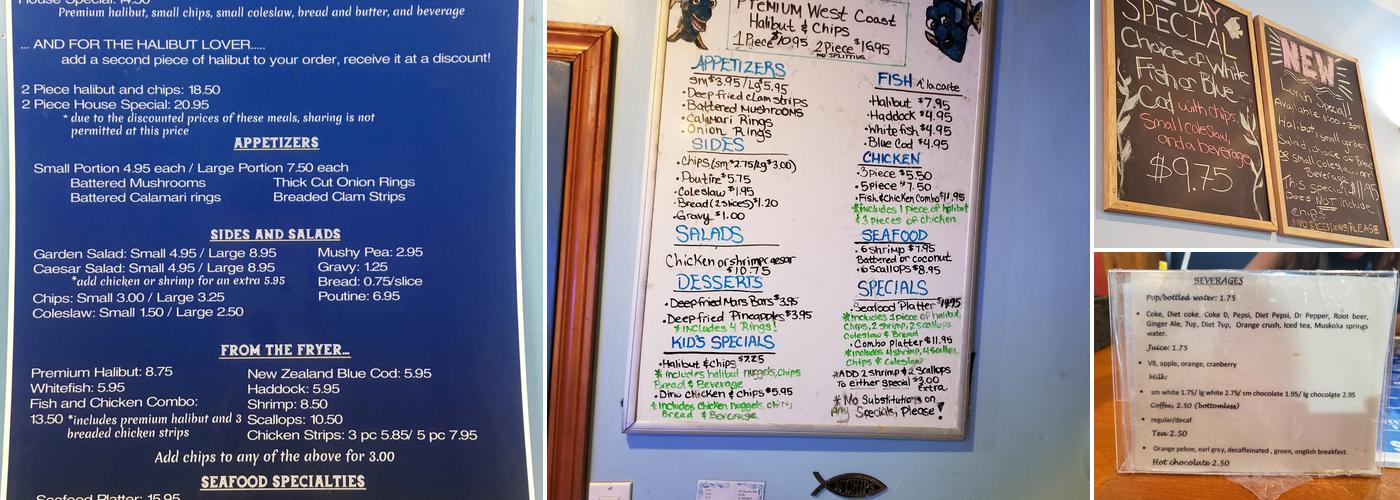 House Special: 14.50
Premium halibut, small chips, small coleslaw, bread and butter, and beverage
... AND FOR THE HALIBUT LOVER.....
add a second piece of halibut to your order, receive it at a discount!
2 Piece halibut and chips: 18.50
2 Piece House Special: 20.95
* due to the discounted prices of these meals, sharing is not
permitted at this price
APPETIZERS
Small Portion 4.95 each / Large Portion 7.50 each
Battered Mushrooms
Thick Cut Onion Rings
Battered Calamari rings
Breaded Clam Strips
SIDES AND SALADS
Garden Salad: Small 4.95 / Large 8.95
Caesar Salad: Small 4.95 / Large 8.95
*add chicken or shrimp for an extra 5.95
Chips: Small 3.00 / Large 3.25
Coleslaw: Small 1.50 / Large 2.50
Mushy Pea: 2.95
Gravy: 1.25
Bread: 0.75/slice
Poutine: 6.95
FROM THE FRYER...
Premium Halibut: 8.75
Whitefish: 5.95
Fish and Chicken Combo:
13.50 *includes premium halibut and 3
breaded chicken strips
New Zealand Blue Cod: 5.95
Haddock: 5.95
Shrimp: 8.50
Scallops: 10.50
Chicken Strips: 3 pc 5.85/ 5 pc 7.95
Add chips to any of the above for 3.00
SEAFOOD SPECIALTIES
Seafood Platter: 15.95
Premium West Coast
Halibut & Chips
1 Piece $10.95 2 Piece $16.95
NO SPLITTING
APPETIZERS
sm $3.95/Lg $5.95
• Deep fried clam strips
• Battered Mushrooms
• Calamari Rings
• Onion Rings
SIDES
• Chips (sm $2.75/Lg $3.00)
• Poutine $5.75
• Coleslaw $1.95
• Bread (2 slices) $1.20
• Gravy $1.00
SALADS
Chicken or shrimp caesar
$10.75
DESSERTS
• Deep fried Mars Bars $3.95
• Deep fried Pineapple $3.95
* includes 4 Rings!
KID'S SPECIALS
• Halibut & chips $7.25
* includes halibut nuggets, chips
Bread & Beverage
• Dino chicken & chips $5.95
* includes chicken nuggets, chips,
Bread & Beverage
FISH A la carte
• Halibut $7.95
• Haddock $4.95
• White fish $4.95
• Blue Cod $4.95
CHICKEN
• 3 piece $5.50
• 5 piece $7.50
• Fish & Chicken Combo $11.95
* includes 1 piece of halibut
& 3 pieces of chicken
SEAFOOD
• 6 shrimp $7.95
Battered or coconut
• 6 scallops $8.95
SPECIALS
• Seafood Platter $14.95
* includes 1 piece of halibut,
chips, 2 shrimp, 2 scallops
coleslaw & Bread
• Combo platter $11.95
* includes 4 shrimp, 4 scallops,
chips & coleslaw
* ADD 2 shrimp & 2 Scallops
To either special $3.00
extra.
* No Substitutions on
Any Specials, Please!
DAY
SPECIAL
Choice of White
Fish or Blue
Cod with chips,
small coleslaw,
and a beverage
$9.75
NEW
Lunch Special!
Available 11:00 - 3pm
Halibut, small garden
Salad, choice of Bread
or small coleslaw and
Beverage
This special $11.95
Does NOT include
chips
* NO EXCEPTIONS PLEASE
BEVERAGES
Pop/bottled water: 1.75
• Coke, Diet coke, Coke 0, Pepsi, Diet Pepsi, Dr Pepper, Root beer,
Ginger Ale, 7up, Diet 7up, Orange crush, Iced tea, Muskoka springs
water.
Juice: 1.75
• V8, apple, orange, cranberry
Milk:
• sm white 1.75/ lg white 2.75/ sm chocolate 1.95/ lg chocolate 2.95
Coffee, 2.50 (bottomless)
• regular/decaf
Tea 2.50
• Orange pekoe, earl grey, decaffeinated , green, english breakfast.
Hot chocolate 2.50